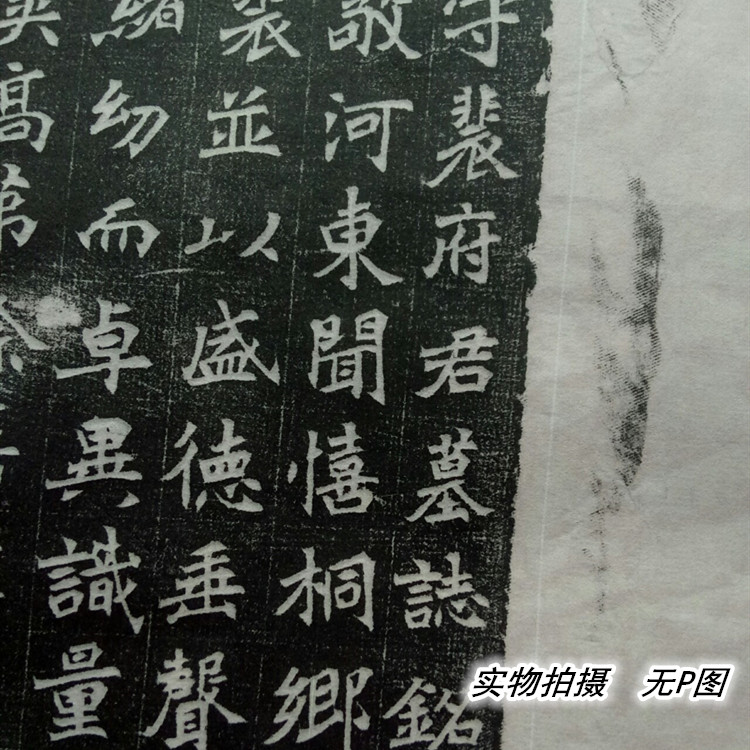 守裴府君墓誌銘
敬河東聞憘桐鄉
裴並以盛德垂聲
緒幼而卓異識量
高第
实物拍摄 无P图